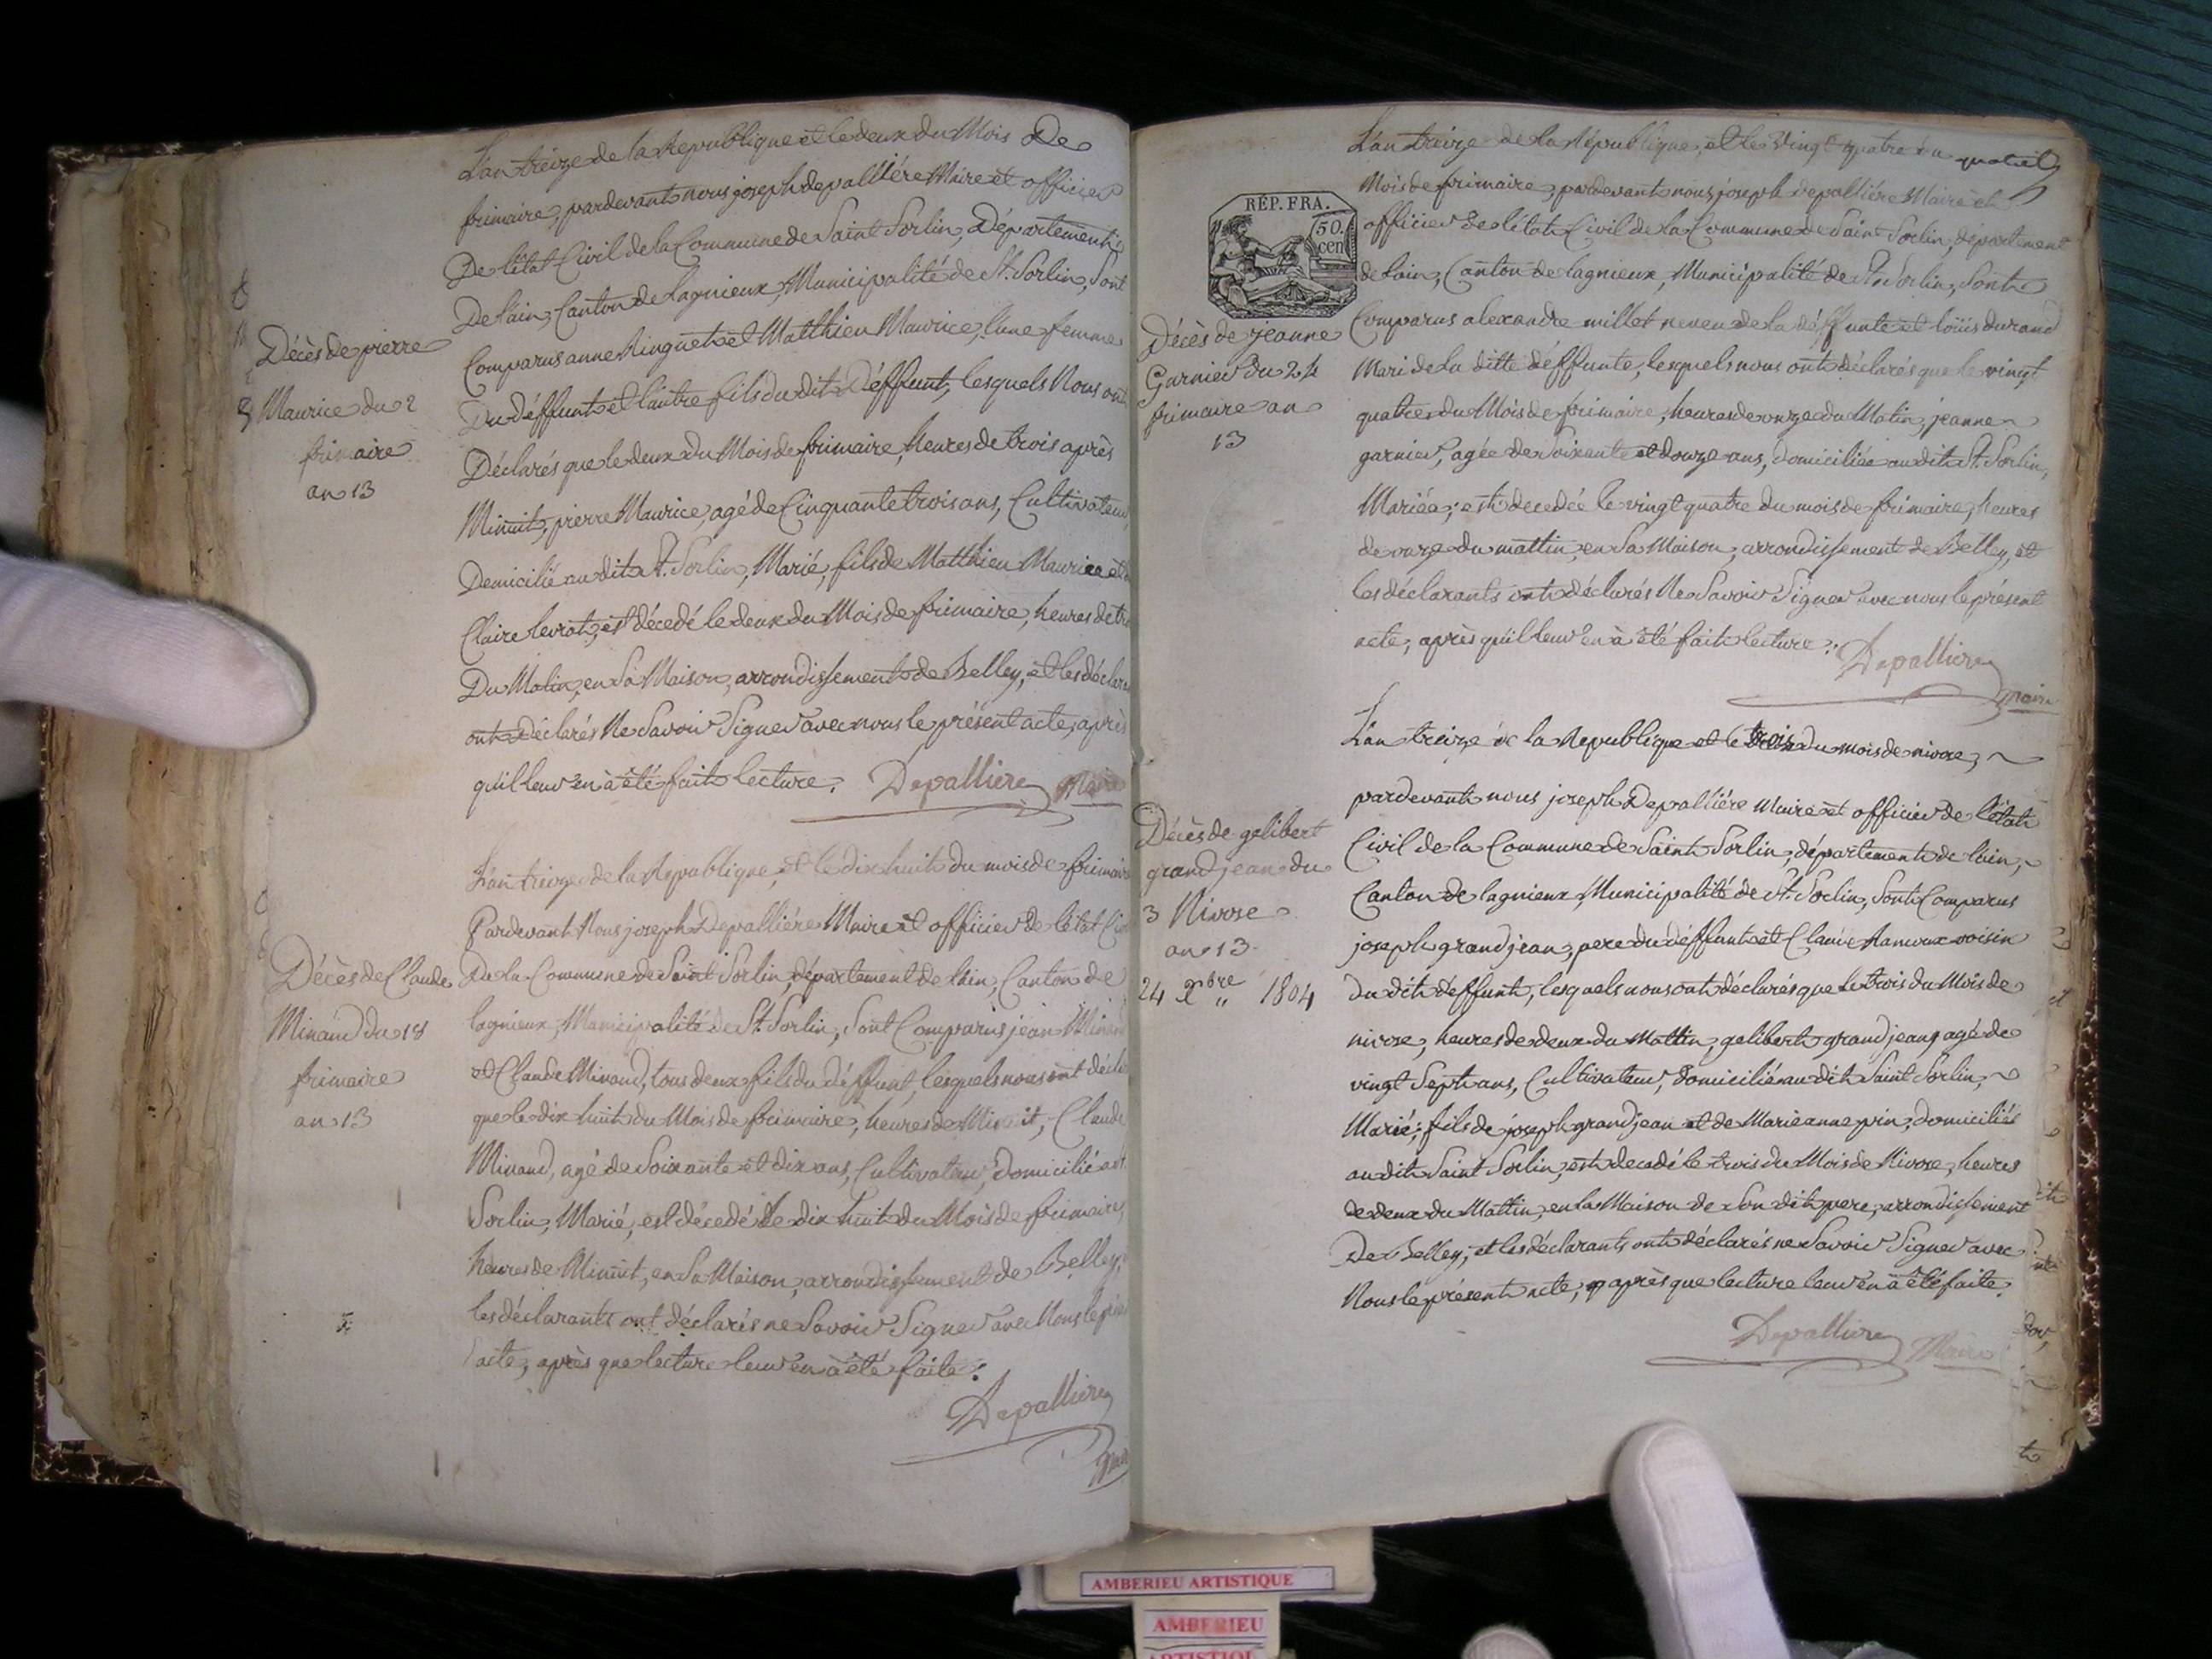 Décès de pierre
Maurice du 2
frimaire
an 13
L'an treize de la Republique et le deux du Mois De
frimaire, pardevant nous joseph depalliére Maire et officier
De l'état Civil de la Commune de Saint Sorlin, Département
De l'ain, Canton de lagnieux, Municipalité de St. Sorlin, Sont
Comparus anne Ringuet et Matthieu Maurice, l'une femme
Du déffunt et l'autre fils du dit Déffunt, lesquels Nous ont
Déclarés que le deux du Mois de frimaire, heures de trois après
Minuit, pierre Maurice, agé de Cinquante trois ans, Cultivateur,
Domicilié au dit St. Sorlin, Marié, fils de Matthieu Maurice et
Claire levrat, est décedé le deux du Mois de frimaire, heures de
Du Matin, en Sa Maison, arrondissement de Belley, et les
ont Déclarés Ne Savoir Signer avec nous le présent acte, après
qu'il leur en à été fait lecture. Depalliére Maire
Décès de Claude
Minaud du 18
frimaire
an 13
L'an treize de la Republique, et le dix huit du mois de
Pardevant Nous joseph Depalliére Maire et officier de l'état
De la Commune de Saint Sorlin, département de l'ain, Canton de
lagnieux, Municipalité de St. Sorlin, Sont Comparus jean
et Claude Minaud, tous deux fils du déffunt, lesquels nous ont
que le dix huit du Mois de frimaire, heures de Minuit, Claude
Minaud, agé de Soixante et dix ans, Cultivateur, Domicilié
Sorlin, Marié, est décedé le dix huit du Mois de frimaire,
heures de Minuit, en Sa Maison, arrondissement de Belley,
les déclarants ont déclarés ne Savoir Signer avec Nous le
acte, après que lecture leur en à été faite.
Depalliére
RÉP. FRA.
50.
cen
Décès de jeanne
Garnier du 24
frimaire an
13
L'an treize de la République, et le Vingt quatre du
Mois de frimaire, pardevant nous joseph depalliére Maire et
officier de l'état Civil de la Commune de Saint Sorlin, département
de l'ain, Canton de lagnieux, Municipalité de St. Sorlin, Sont
Comparus alexandre millet neveu de la déffunte et loüis durand
Mari de la ditte déffunte, lesquels nous ont déclarés que le vingt
quatre du Mois de frimaire, heures de onze du Matin, jeanne
garnier, agée de Soixante et douze ans, Domiciliée au dit St. Sorlin,
Mariée, est decedée le vingt quatre du mois de frimaire, heures
de onze du mattin, en Sa Maison, arrondissement de Belley, et
les déclarants ont déclarés Ne Savoir Signer avec nous le présent
acte, après qu'il leur en à été fait lecture.
Depalliére
Maire
Décès de galibert
grandjean du
3 Nivose
an 13
24 Xbre 1804
L'an treize de la Republique et le trois du mois de nivose,
pardevant nous joseph Depalliére Maire et officier de l'état
Civil de la Commune de Saint Sorlin, département de l'ain,
Canton de lagnieux, Municipalité de St. Sorlin, Sont Comparus
joseph grandjean, pere du déffunt et Claude voisin
du dit déffunt, lesquels nous ont déclarés que le trois du Mois de
nivose, heures de deux du Mattin, galibert grandjean, agé de
vingt Sept ans, Cultivateur, Domicilié au dit Saint Sorlin,
Marié, fils de joseph grandjean et de Marie anne pin, domiciliés
au dit Saint Sorlin, est decedé le trois du Mois de Nivose, heures
de deux du Mattin, en la Maison de Son dit pere, arrondissement
De Belley, et les déclarants ont déclarés ne Savoir Signer avec
Nous le présent acte, après que lecture leur en à été faite.
Depalliére Maire
AMBERIEU ARTISTIQUE
AMBERIEU